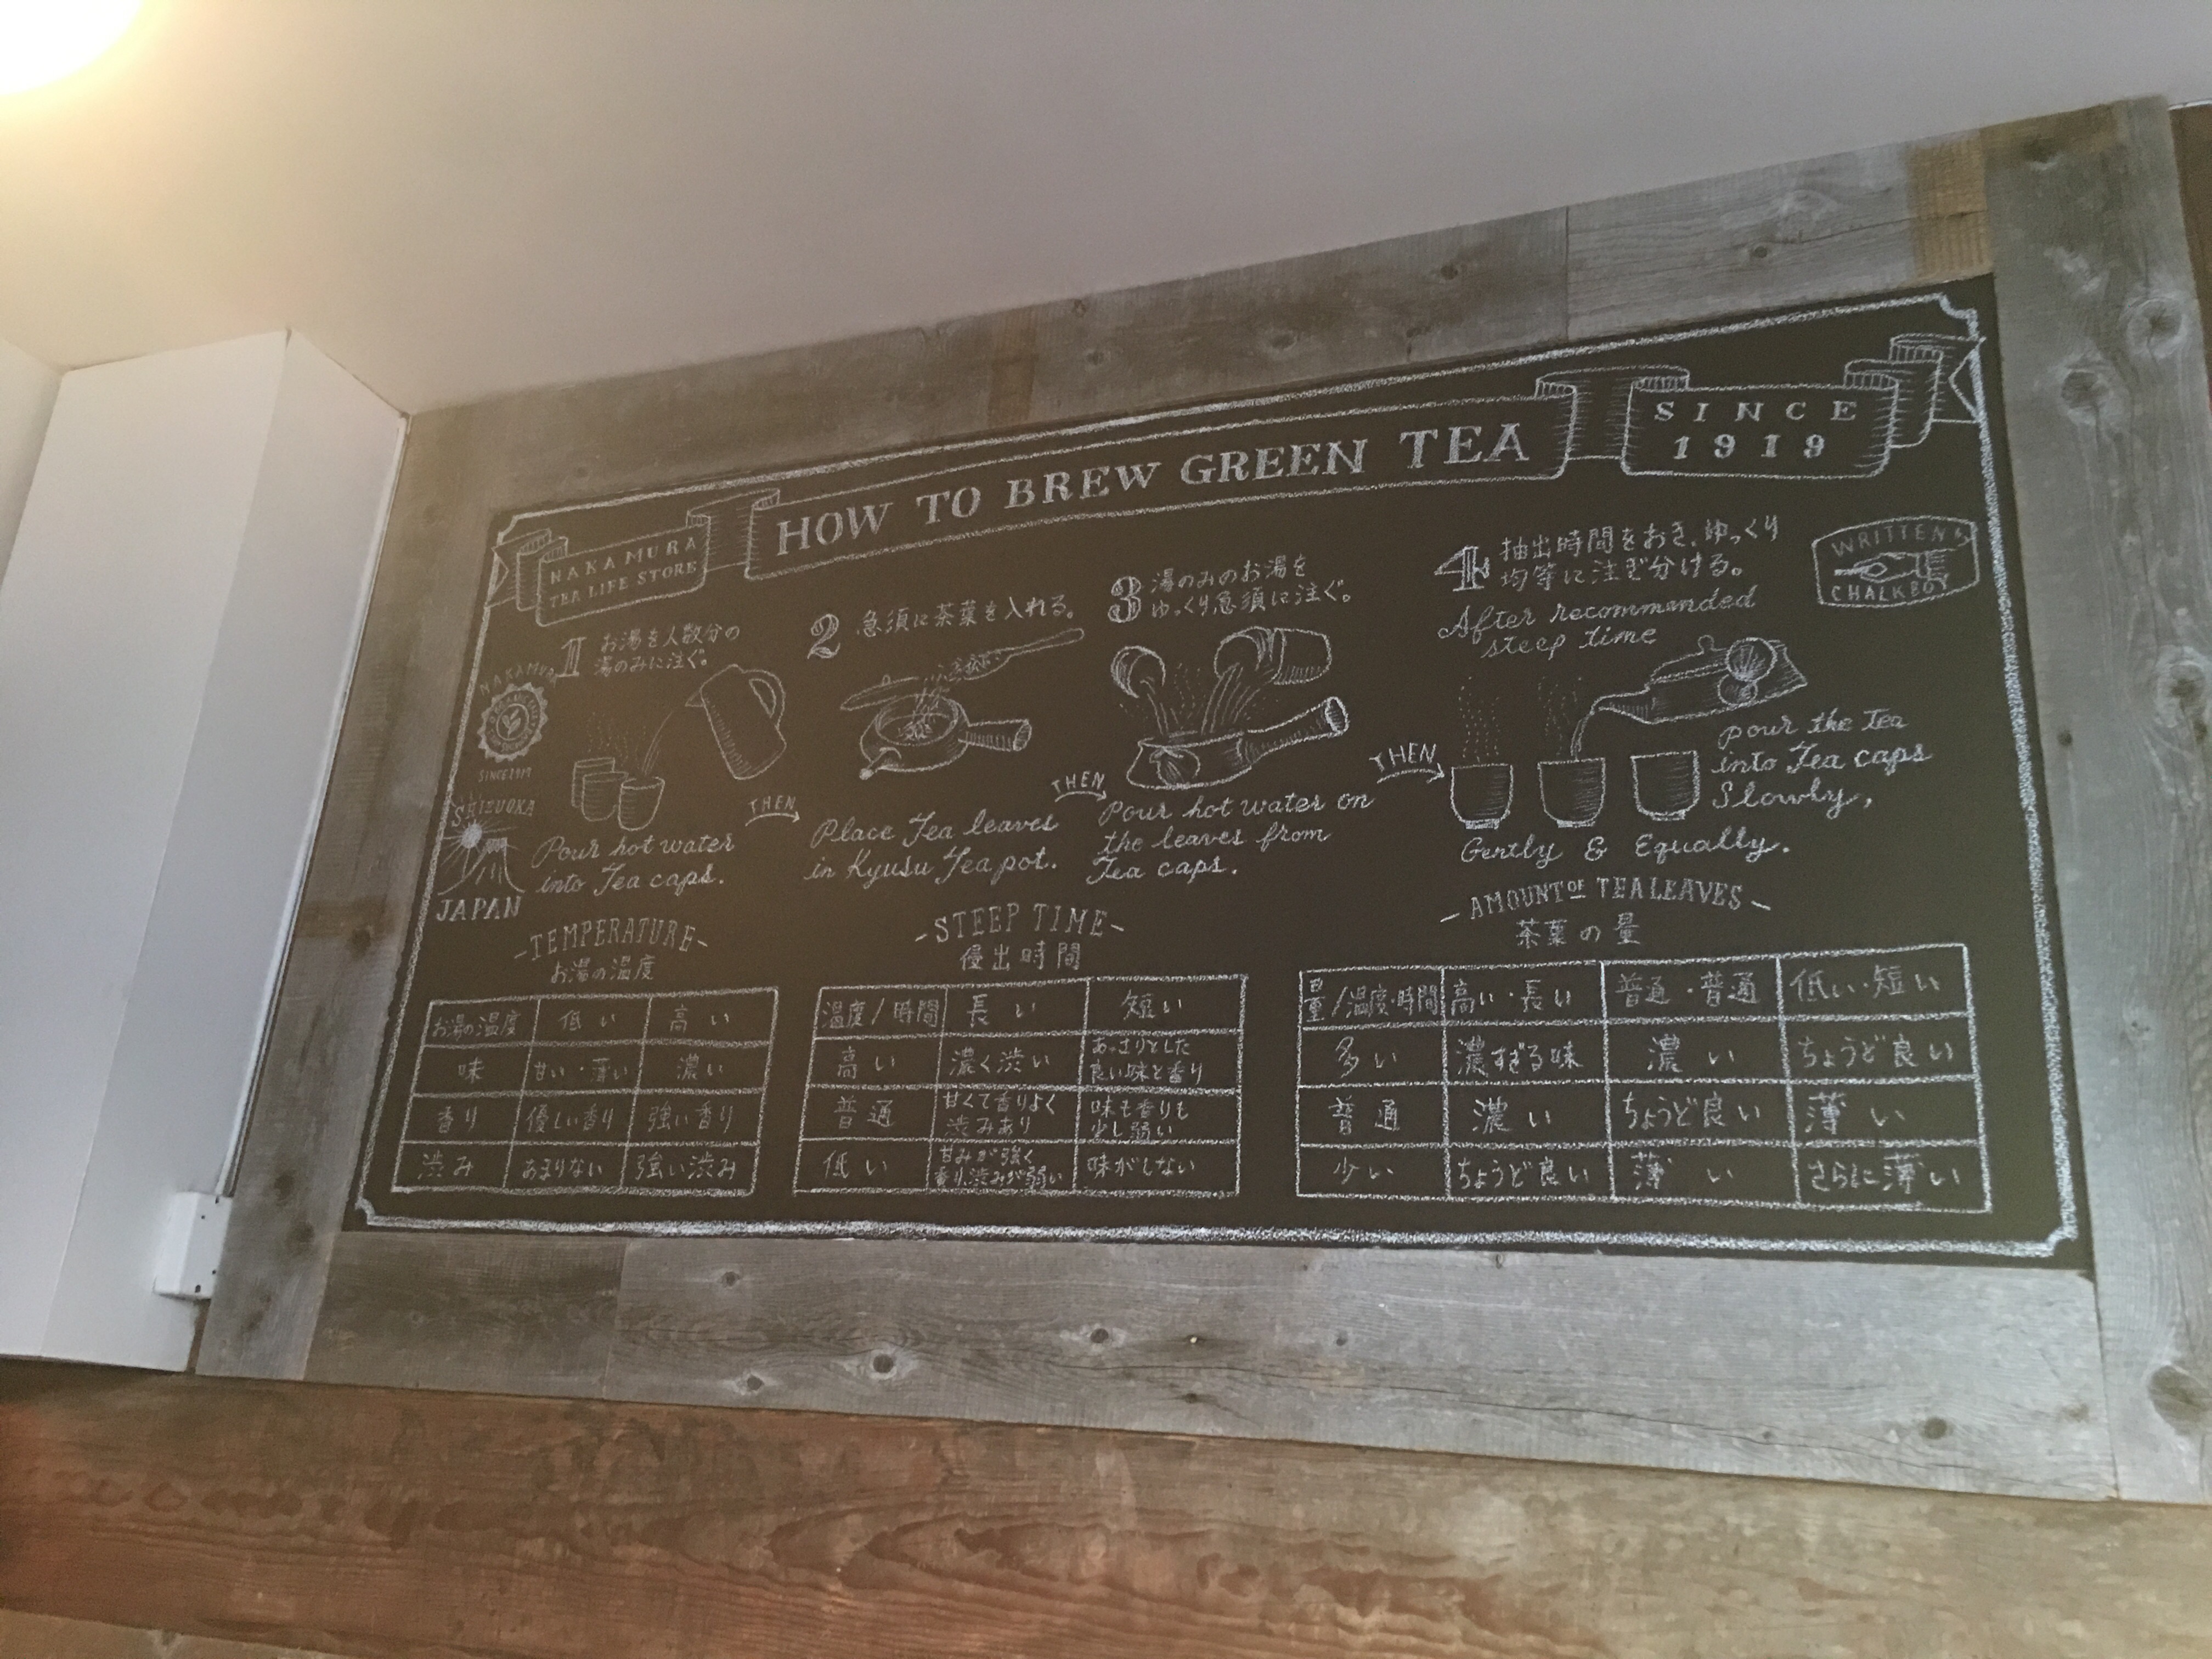 NAKAMURA
TEA LIFE STORE
HOW TO BREW GREEN TEA
SINCE
1919
WRITTEN
CHALKBOY
NAKAMURA
SINCE 1919
SHIZUOKA
JAPAN
1 お湯を人数分の
湯のみに注ぐ。
Pour hot water
into Tea caps.
THEN
2 急須に茶葉を入れる。
Place Tea leaves
in Kyusu Tea pot.
THEN
3 湯のみのお湯を
ゆっくり急須に注ぐ。
Pour hot water on
the leaves from
Tea caps.
THEN
4 抽出時間をおき、ゆっくり
均等に注ぎ分ける。
After recommended
steep time
pour the Tea
into Tea caps
Slowly,
Gently & Equally.
-TEMPERATURE-
お湯の温度
お湯の温度 低い 高い
味 甘い・薄い 濃い
香り 優しい香り 強い香り
渋み あまりない 強い渋み
-STEEP TIME-
優出時間
温度/時間 長い 短い
高い 濃く渋い あっさりとした
良い味と香り
普通 甘くて香りよく
渋みあり 味も香りも
少し弱い
低い 甘みが強く
香り、渋みが弱い 味がしない
- AMOUNT OF TEA LEAVES -
茶葉の量
量/温度・時間 高い・長い 普通・普通 低い・短い
多い 濃すぎる味 濃い ちょうど良い
普通 濃い ちょうど良い 薄い
少い ちょうど良い 薄い さらに薄い